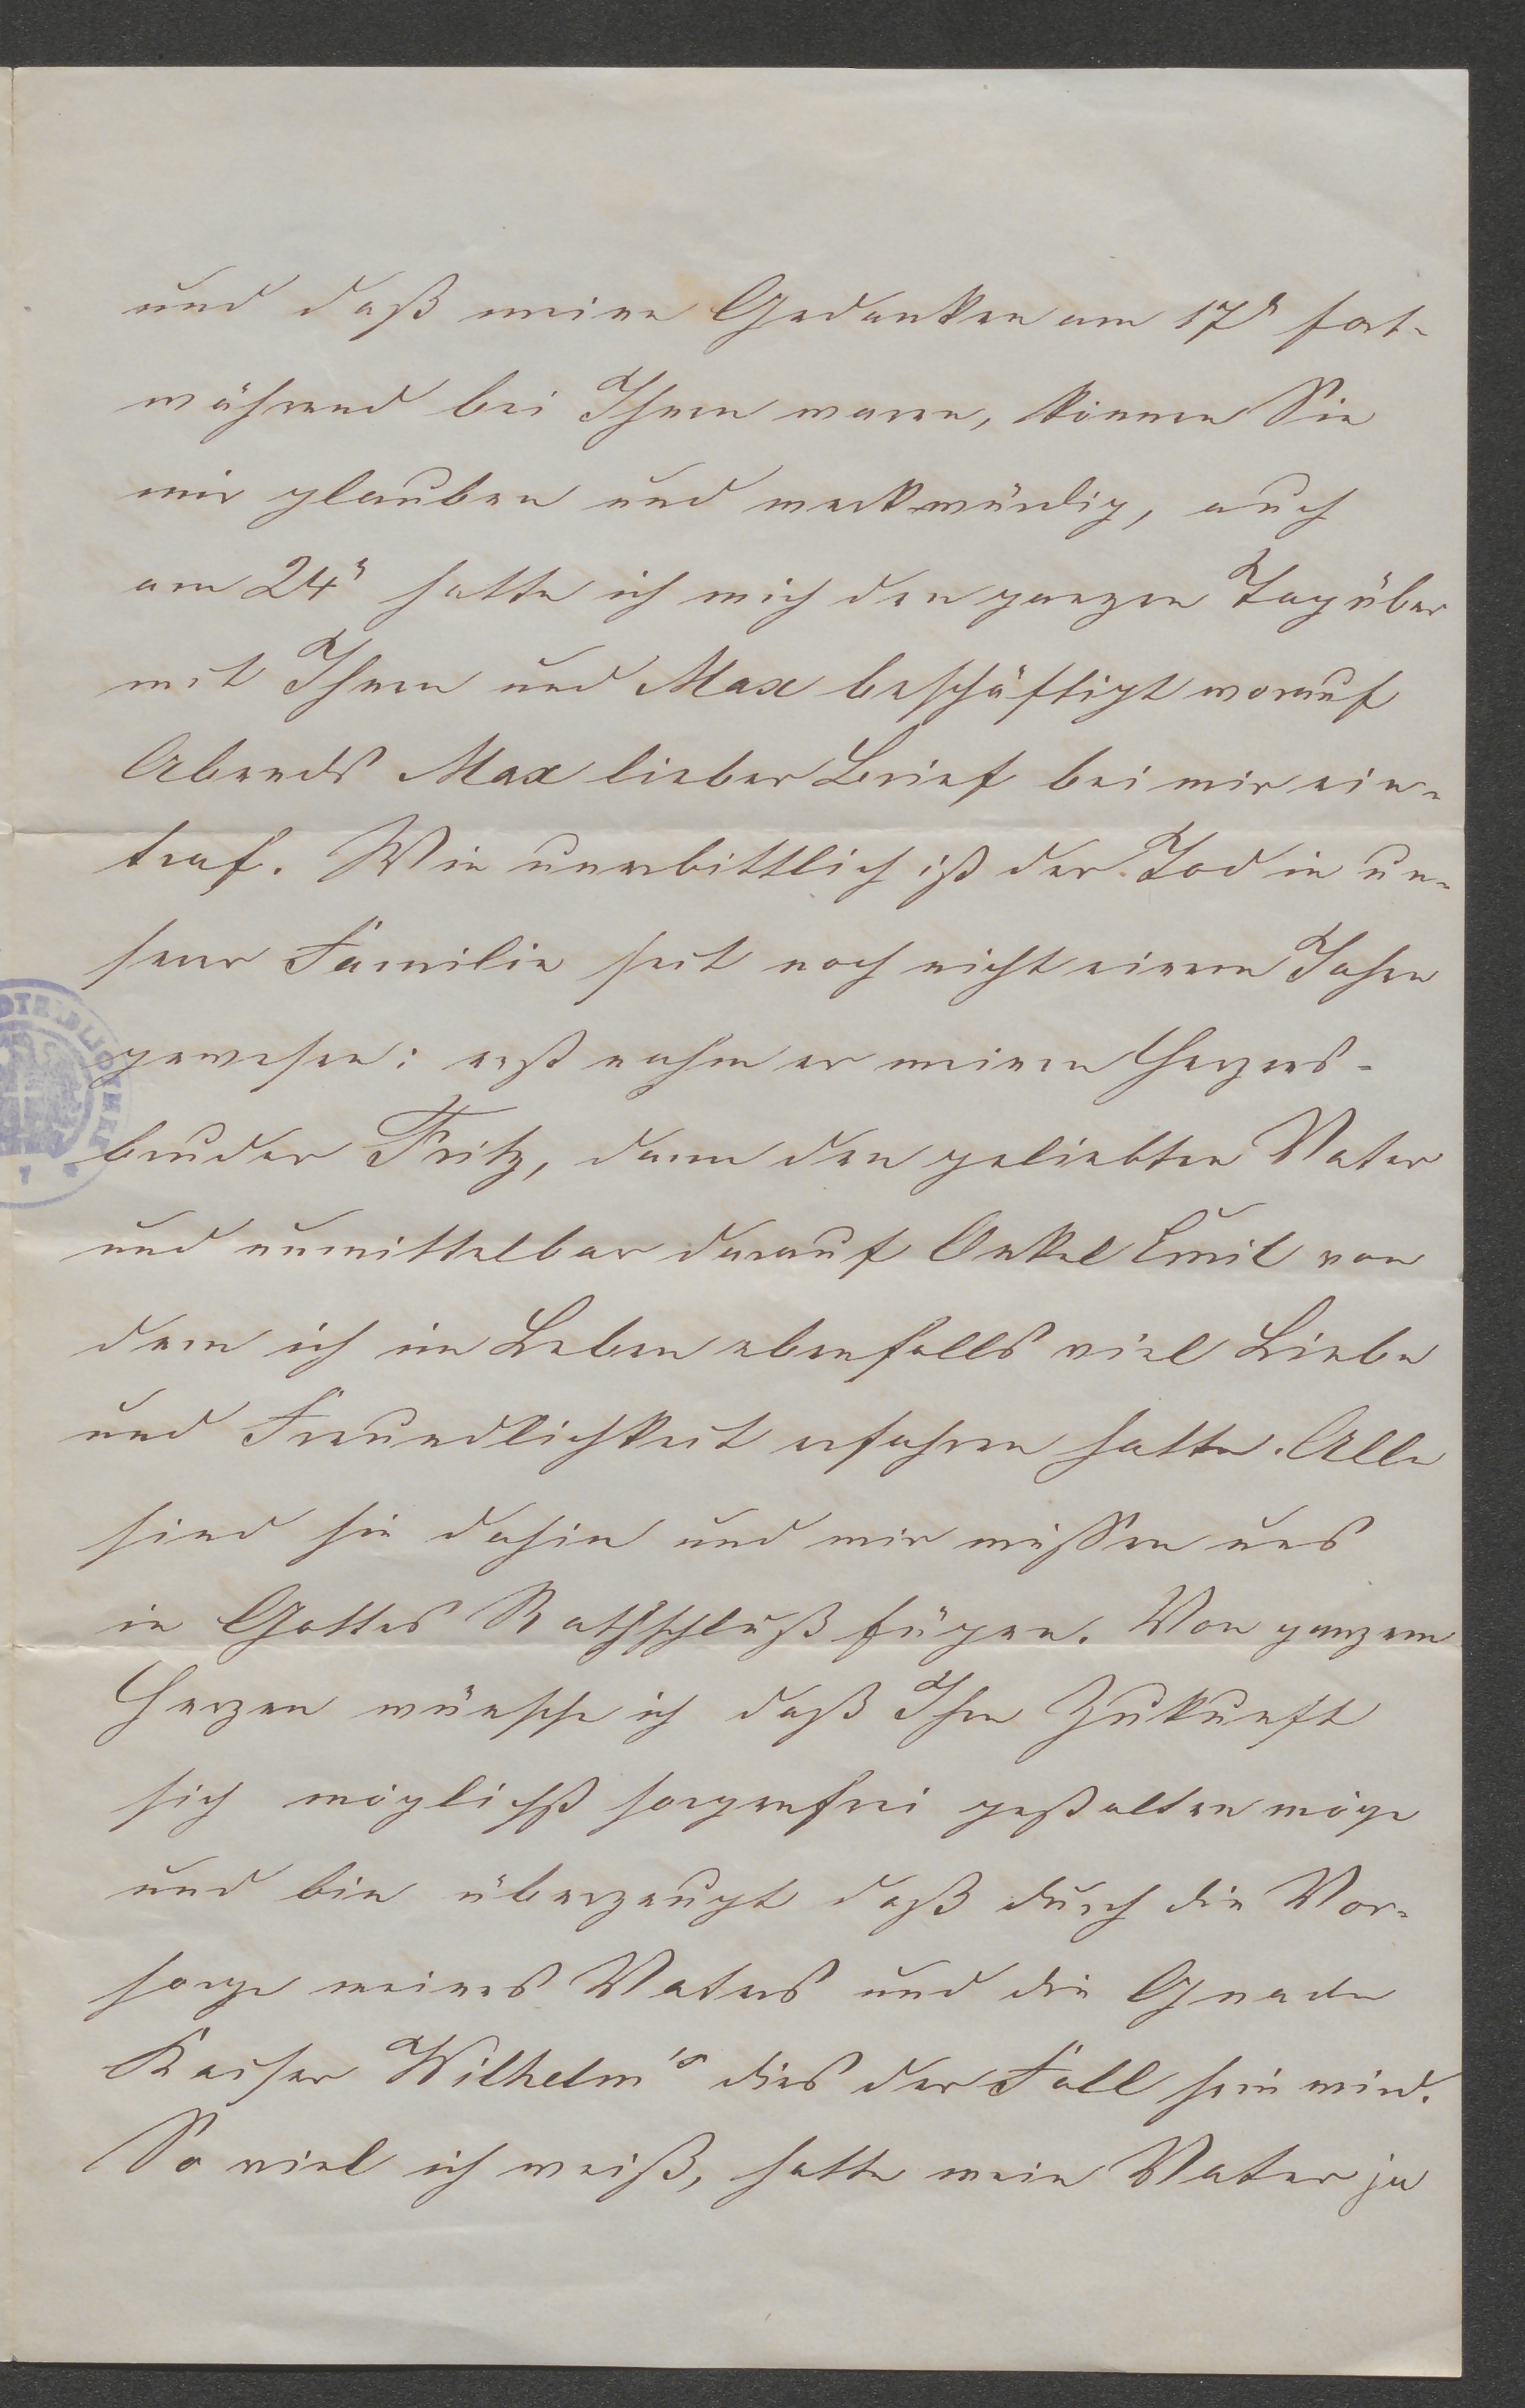 und daß meine Gedanken am 17ⁿ fort-
während bei Ihnen waren, können Sie
mir glauben und merkwürdig, auch
am 24ⁿ hatte ich mich den ganzen Tag über
mit Ihnen und Max beschäftigt worauf
Abends Max lieber Brief bei mir ein-
traf. Wie unerbittlich ist der Tod in un-
serer Familie seit noch nicht einem Jahre
gewesen: erst nahm er meinen Herzens-
bruder Fritz, dann den geliebten Vater
und unmittelbar darauf Onkel Emil von
dem ich im Leben ebenfalls viel Liebe
und Freundlichkeit erfahren hatte. Alle
sind sie dahin und wir müssen uns
in Gottes Rathschluß fügen. Von ganzem
Herzen wünsche ich daß Ihre Zukunft
sich möglichst sorgenfrei gestalten möge
und bin überzeugt daß durch die Vor-
sorge meines Vaters und die Gnade
Kaiser Wilhelm's dies der Fall sein wird.
So viel ich weiß, hatte mein Vater ja